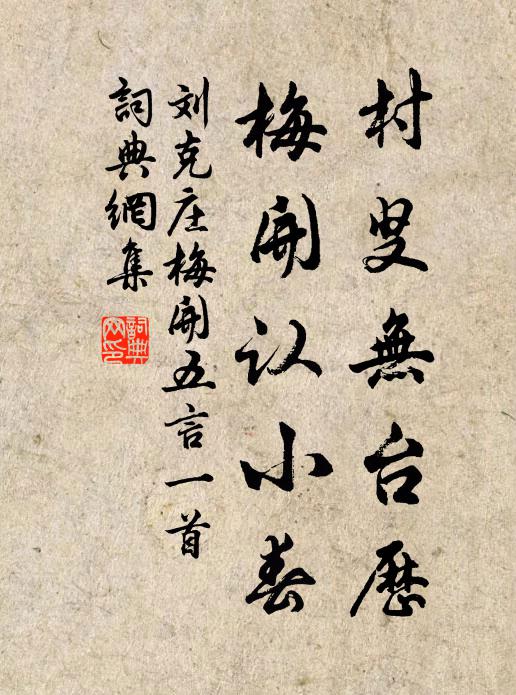 村叟無台歷
梅開认小春
刘克庄梅開五言一首
詞典網集
詞典网印